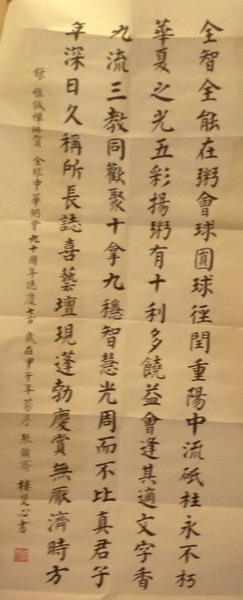 全智全能在粥會球圓球徑閏重陽中流砥柱永不朽
華夏之光五彩揚粥有十利多饒益會逢其適文字香
九流三教同歡聚十拿九穩智慧光周而不比真君子
年深日久稱所長誌喜藝壇現蓬勃慶賞無厭濟時方
錄 惟誠禪師賀 全球中華粥會九十周年誌慶 歲在甲午年